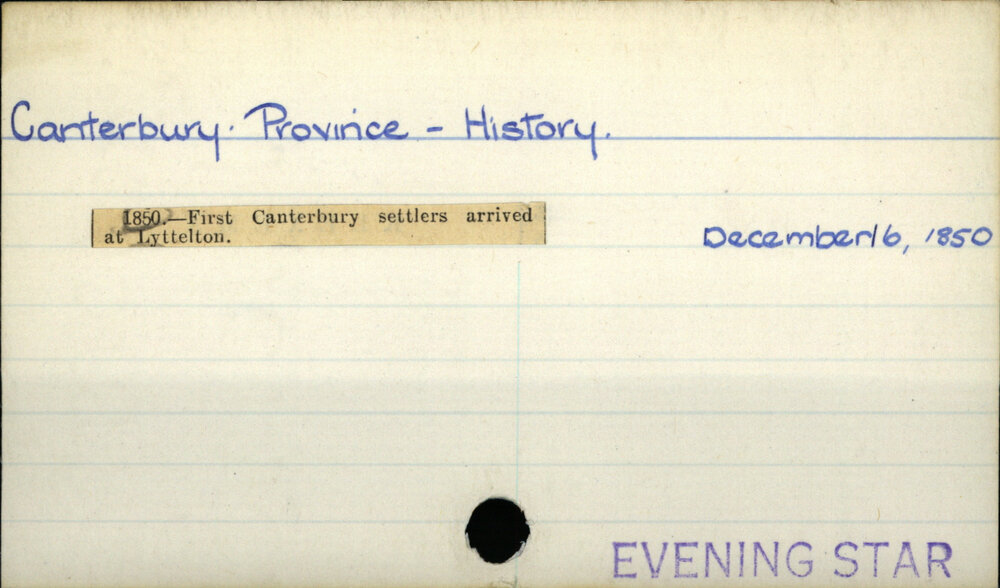 Canterbury Province - History.
1850.—First Canterbury settlers arrived
at Lyttelton.
December 16, 1850
EVENING STAR